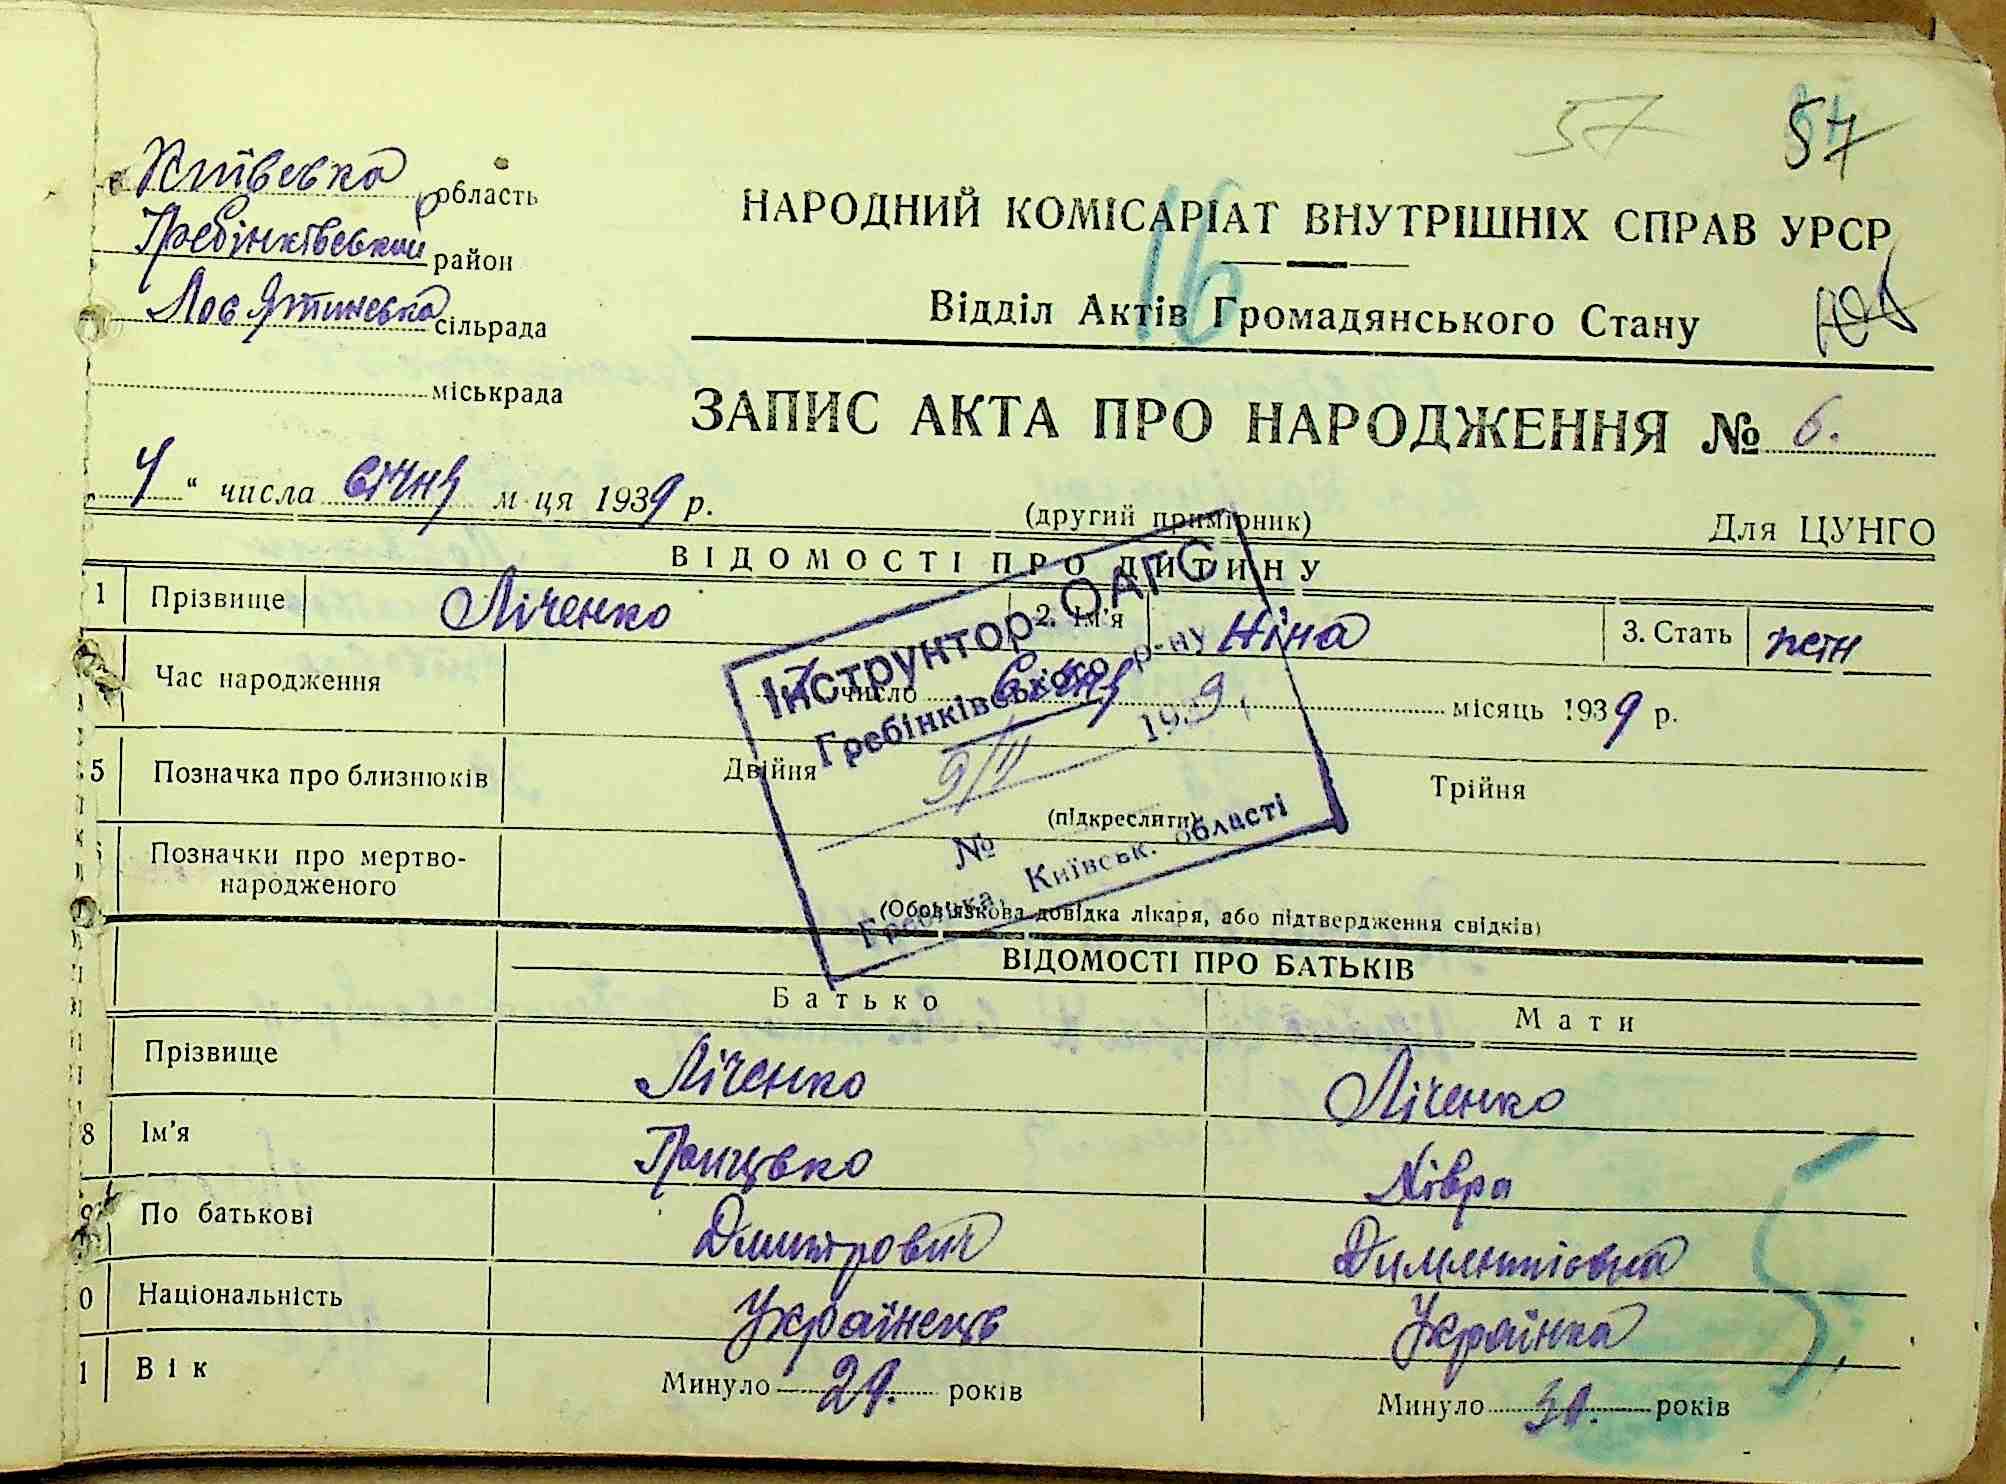 57 57
Київська область
Гребінківський район
Лосятинська сільрада
міськрада
НАРОДНИЙ КОМІСАРІАТ ВНУТРІШНІХ СПРАВ УРСР
16
Відділ Актів Громадянського Стану
ЗАПИС АКТА ПРО НАРОДЖЕННЯ № 6.
„ 4 “ числа січня м-ця 1939 р.
(другий примірник)
Для ЦУНГО
ВІДОМОСТІ ПРО ДИТИНУ
1 Прізвище Ліченко 2. Ім'я Ніна 3. Стать жін
Час народження число січня місяць 1939 р.
5 Позначка про близнюків Двійня Трійня
(підкреслити)
Позначки про мертво-
народженого
(Обов'язкова довідка лікаря, або підтвердження свідків)
Інструктор ОАГС
Гребінківського р-ну
9/II 1939
№
Гребінка, Київськ. області
ВІДОМОСТІ ПРО БАТЬКІВ
Батько Мати
Прізвище Ліченко Ліченко
8 Ім'я Грицько Хівря
9 По батькові Дмитрович
0 Національність Українець Українка
1 Вік Минуло 29. років Минуло років